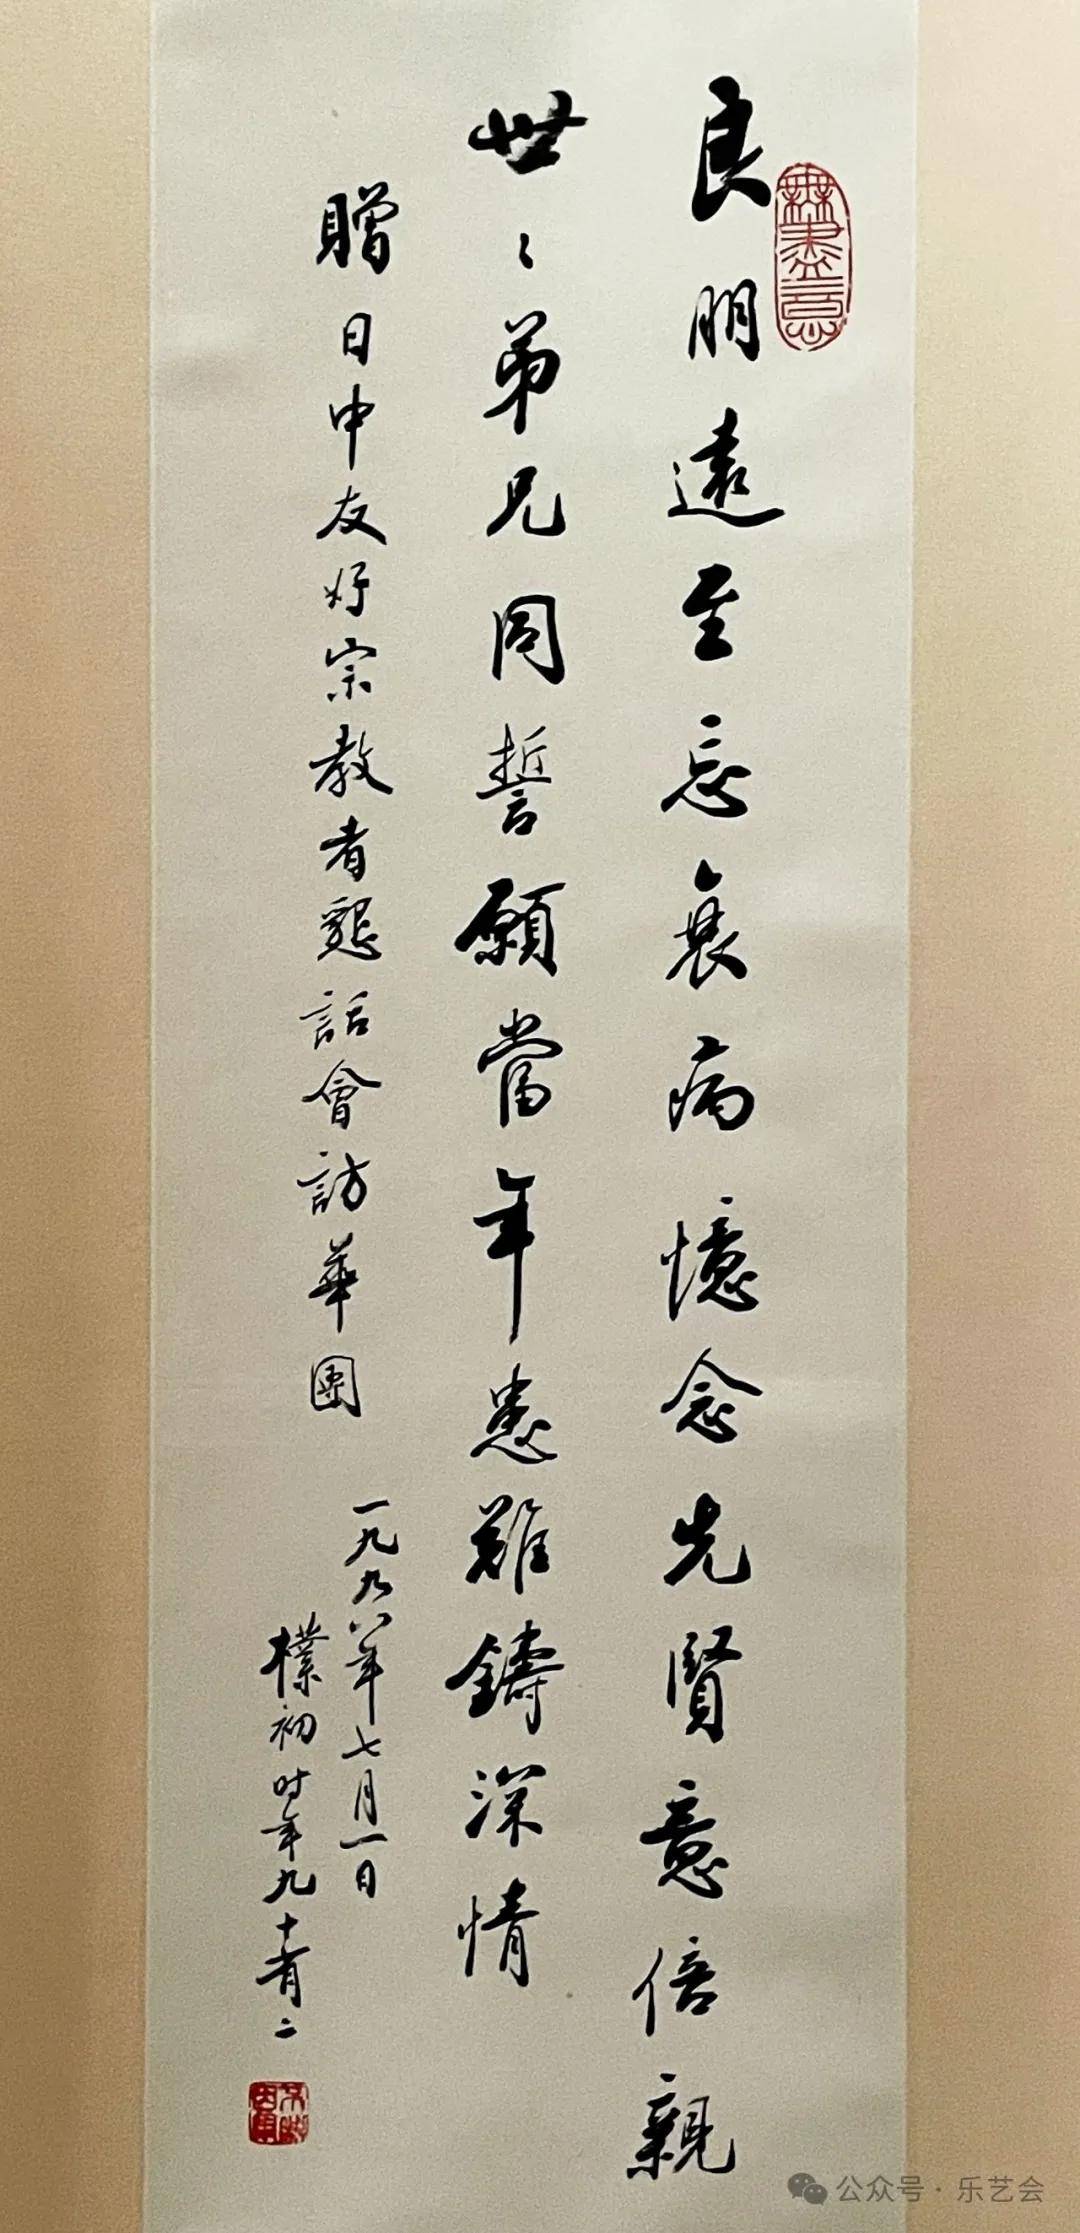 良朋遠至忘衰病憶念先賢意倍親
世々弟兄同誓願當年患難鑄深情
贈日中友好宗教者懇話會訪華團
一九九八年七月一日
樸初时年九十有二
無盡意
公众号·乐艺会